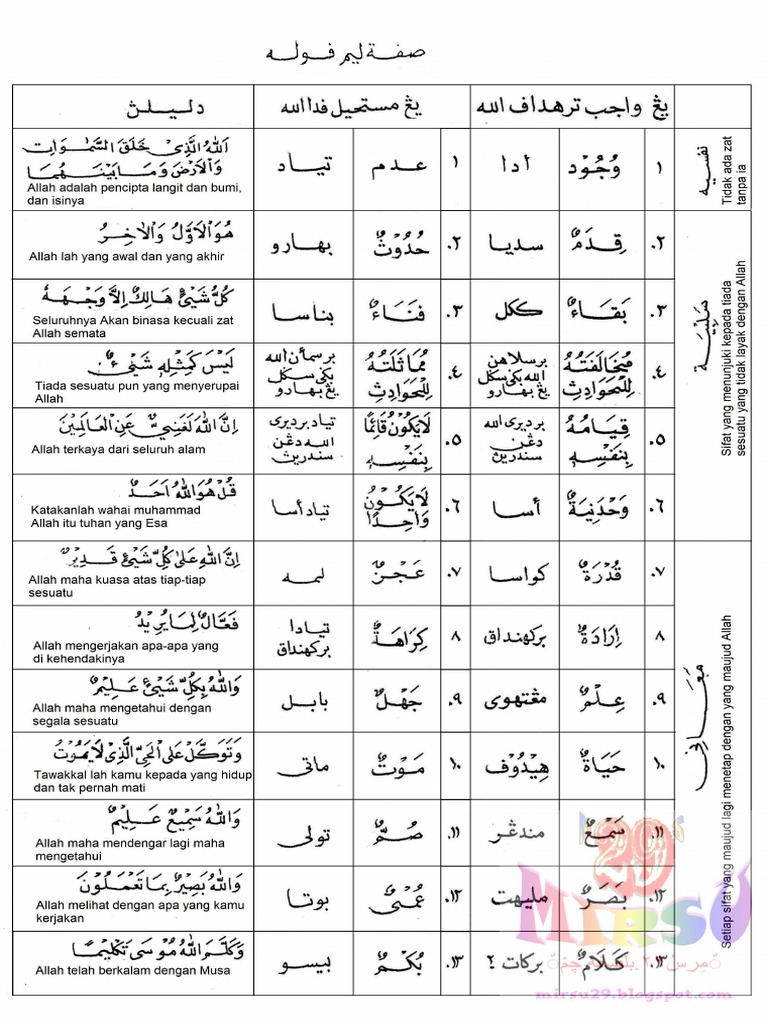 صفة ليم ڤوله
يڠ واجب ترهداف الله
يڠ مستحيل ڤدا الله
دليلڽ
نفسيه
Tidak ada zat
tanpa ia
١
وُجُوْد
أدا
١
عدم
تياد
اَللهُ الَّذِيْ خَلَقَ السَّمٰوَاتِ
وَالْاَرْضَ وَمَا بَيْنَهُمَا
Allah adalah pencipta langit dan bumi,
dan isinya
سَلْبِيَة
Sifat yang menunjuki kepada tiada
sesuatu yang tidak layak dengan Allah
٢.
قِدَمٌ
سديا
٢.
حُدُوْثٌ
بهارو
هُوَ الْاَوَّلُ وَالْاٰخِرُ
Allah lah yang awal dan yang akhir
٣.
بَقَاءٌ
ككل
٣.
فَنَاءٌ
بناسا
كُلُّ شَيْئٍ هَالِكٌ اِلَّا وَجْهَهُ
Seluruhnya Akan binasa kecuali zat
Allah semata
٤.
مُخَالَفَتُهُ
لِلْحَوَادِثِ
برسلاهن
الله بكي سكل
يڠ بهارو
٤.
مُمَاثَلَتُهُ
لِلْحَوَادِثِ
برسمأن الله
بكي سكل
يڠ بهارو
لَيْسَ كَمِثْلِهِ شَيْئٌ
Tiada sesuatu pun yang menyerupai
Allah
٥.
قِيَامُهُ
بِنَفْسِهِ
برديري الله
دڠن
سنديرين
٥.
لَايَكُوْنُ قَائِمًا
بِنَفْسِهِ
تياد برديري
الله دڠن
سنديرين
اِنَّ اللهَ لَغَنِيٌّ عَنِ الْعَالَمِيْنَ
Allah terkaya dari seluruh alam
٦.
وَحْدَنِيَةٌ
أسا
٦.
لَايَكُوْنُ
وَاحِدًا
تياد أسا
قُلْ هُوَ اللهُ اَحَدٌ
Katakanlah wahai muhammad
Allah itu tuhan yang Esa
مَعَانِى
Setiap sifat yang maujud lagi menetap dengan yang maujud Allah
٧.
قُدْرَةٌ
كواسا
٧.
عَجْزٌ
ليمه
اِنَّ اللهَ عَلٰى كُلِّ شَيْئٍ قَدِيْرٌ
Allah maha kuasa atas tiap-tiap
sesuatu
٨
اِرَادَةٌ
بركهنداق
٨
كِرَاهَةٌ
تيادا
بركهنداق
فَعَّالٌ لِمَا يُرِيْدُ
Allah mengerjakan apa-apa yang
di kehendakinya
٩.
عِلْمٌ
مڠتهوى
٩.
جَهْلٌ
بابل
وَاللهُ بِكُلِّ شَيْئٍ عَلِيْمٌ
Allah maha mengetahui dengan
segala sesuatu
١٠.
حَيَاةٌ
هيدوف
١٠.
مَوْتٌ
ماتى
وَتَوَكَّلْ عَلَى الْحَيِّ الَّذِيْ لَايَمُوْتُ
Tawakkal lah kamu kepada yang hidup
dan tak pernah mati
١١.
سَمْعٌ
مندڠر
١١.
صُمٌّ
تولى
وَاللهُ سَمِيْعٌ عَلِيْمٌ
Allah maha mendengar lagi maha
mengetahui
١٢.
بَصَرٌ
مليهت
١٢.
عُمْىٌ
بوتا
وَاللهُ بَصِيْرٌ بِمَا تَعْمَلُوْنَ
Allah melihat dengan apa yang kamu
kerjakan
١٣.
كَلَامٌ
بركات ٢
١٣.
بُكْمٌ
بيسو
وَكَلَّمَ اللهُ مُوْسَى تَكْلِيْمًا
Allah telah berkalam dengan Musa
29
MIRSU
mirsu29.blogspot.com